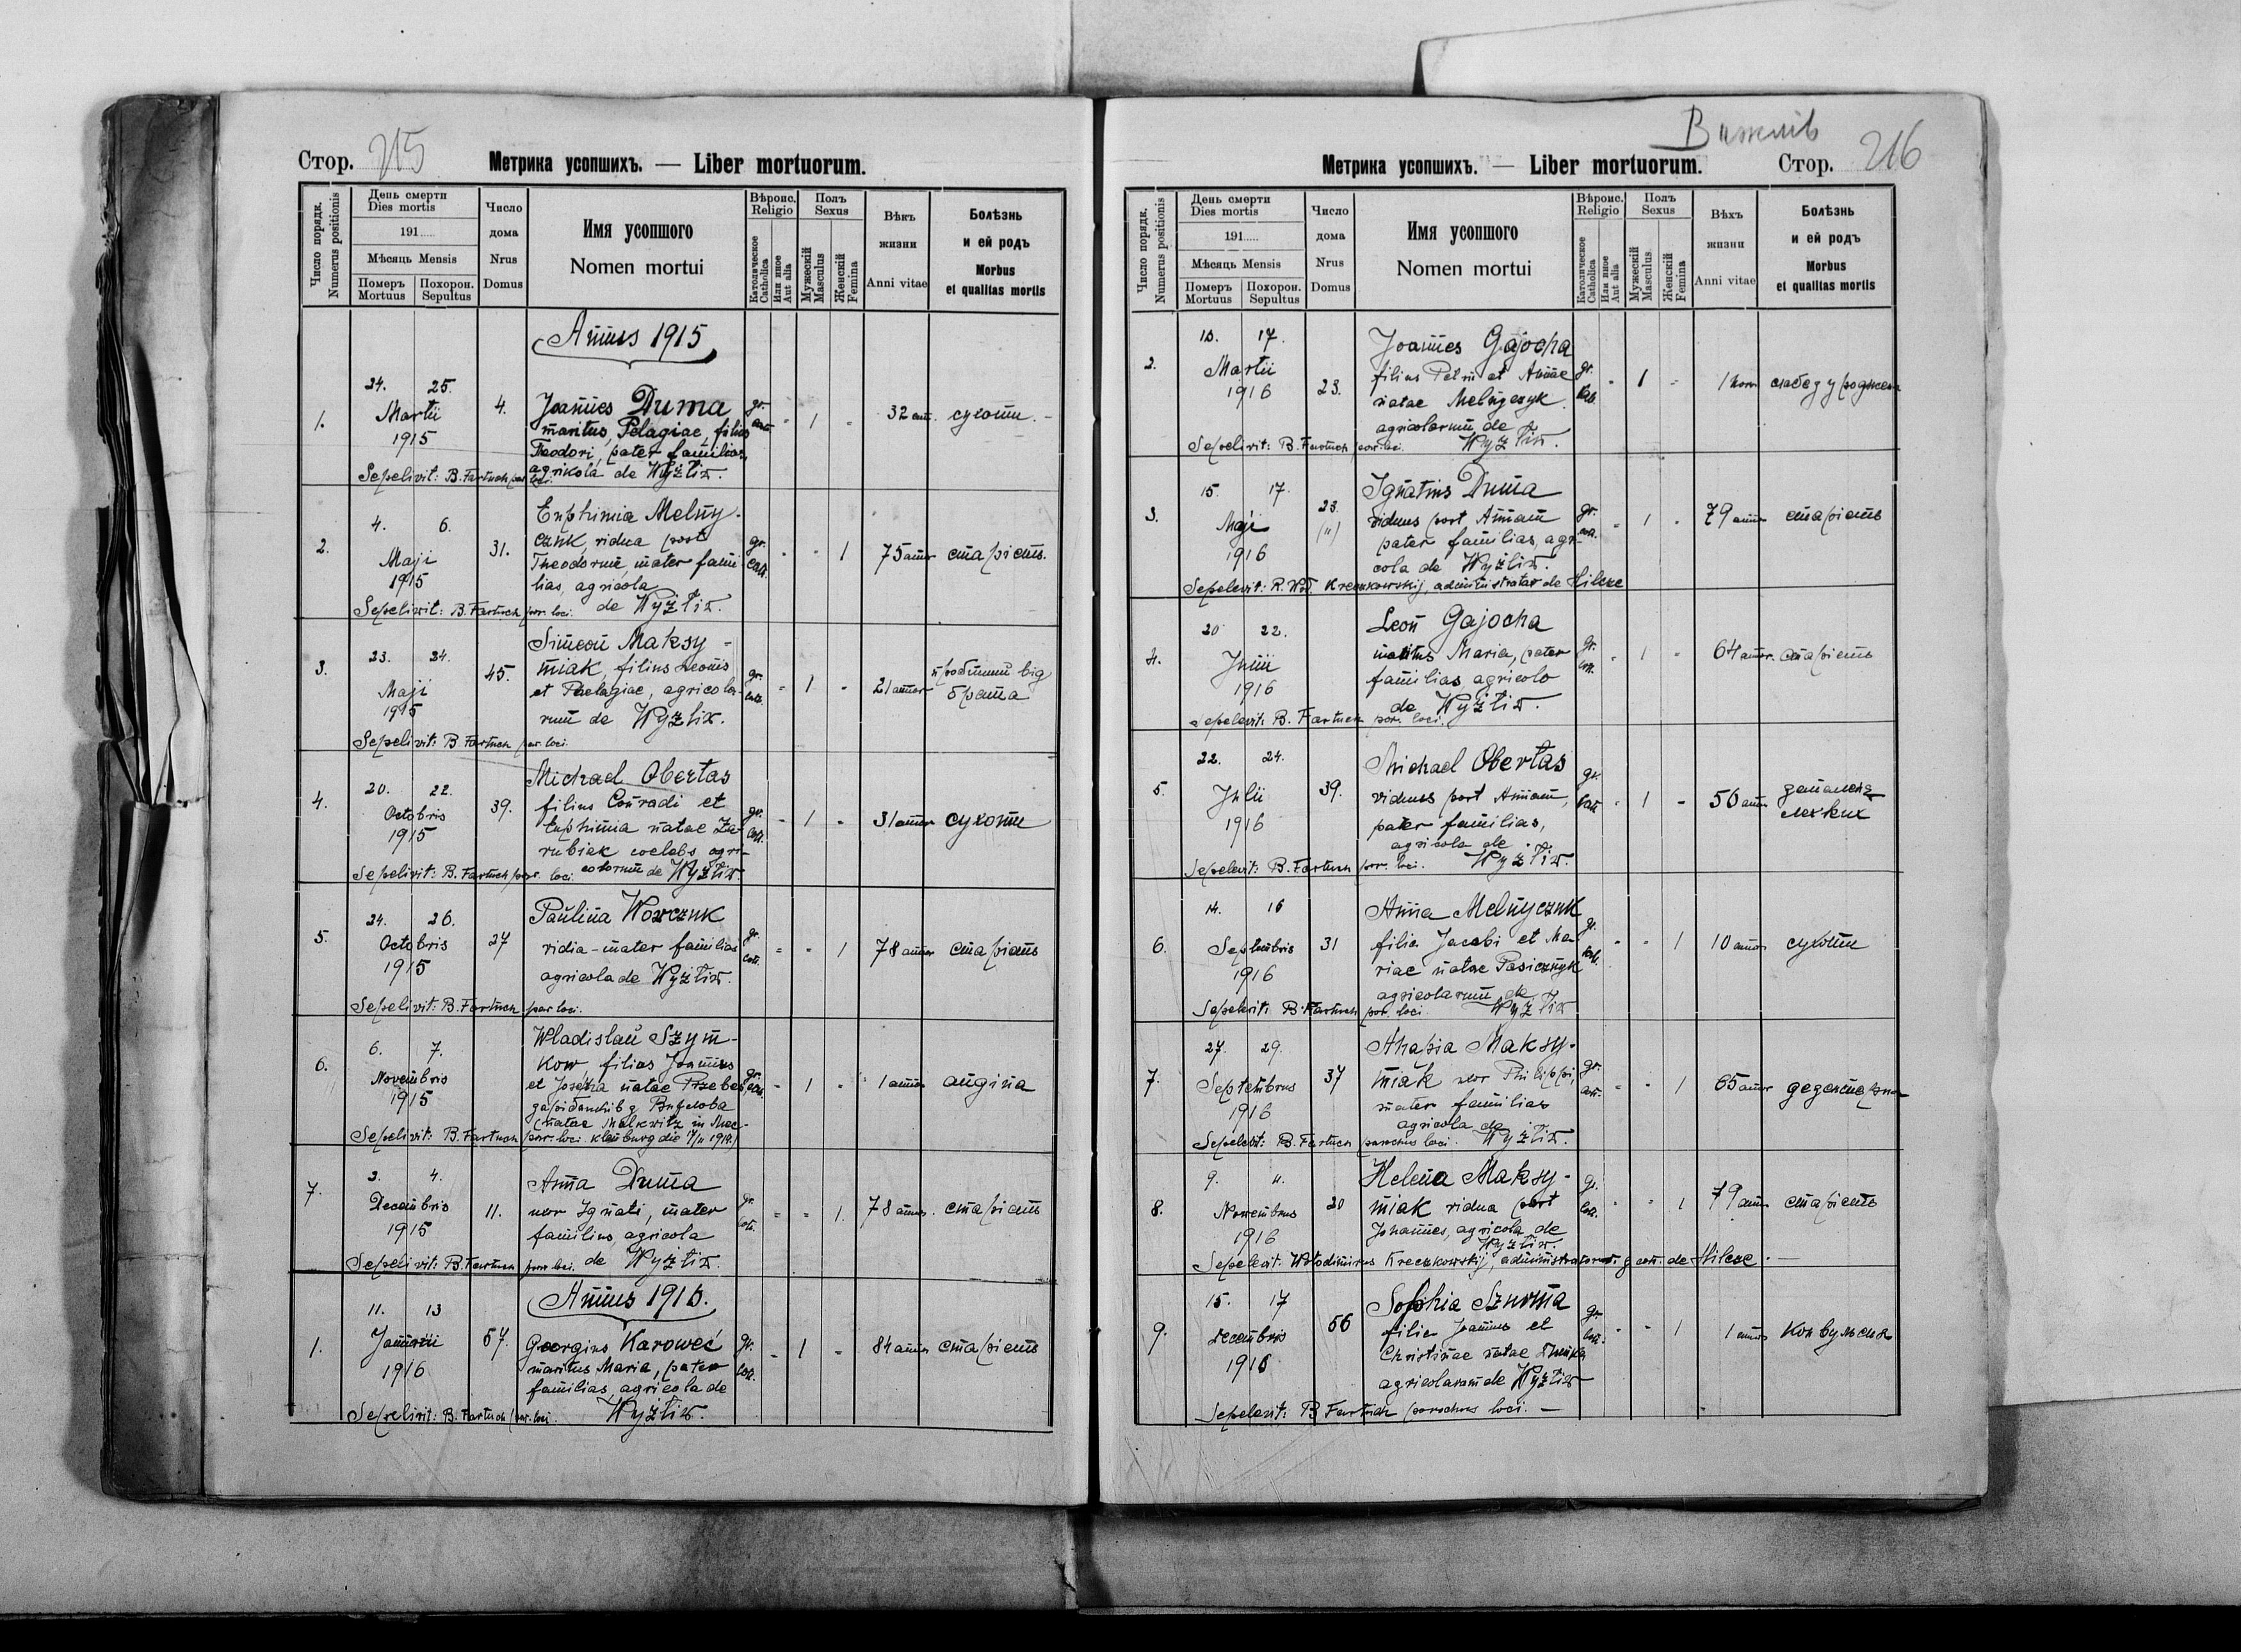 Стор. 215
Метрика усопшихъ. — Liber mortuorum.
Число порядк. Numerus positionis
День смерти Dies mortis
191.....
Мѣсяць Mensis
Померъ Mortuus
Похорон. Sepultus
Число дома Nrus Domus
Имя усопшого Nomen mortui
Вѣроис. Religio
Католическое Catholica
Или иное Aut alia
Полъ Sexus
Мужескій Masculus
Женскій Femina
Вѣкъ жизни Anni vitae
Болѣзнь и ей родъ Morbus et qualitas mortis
Annus 1915
1. 24. 25. Martii 1915 4. gr. cat. - 1 - 32 ann. сухоти.
Joannes Duma
maritus Pelagiae, filius
Teodori, pater familias,
agrikola de Wyżłiw.
Sepelivit: B. Fartuch par. loci.
2. 4. 6. Maji 1915 31. gr. cath. - - 1 75 annor старість.
Euphimia Melny-
czuk, vidua post
Theodorum, mater fami
lias, agricola
de Wyżłiw.
Sepelivit: B. Fartuch par. loci.
3. 23. 24. Maji 1915 45. gr. cath. - 1 - 21 annor
Simeon Maksy-
miak, filius Leonis
et Pelagiae, agricola-
rum de Wyżłiw.
від
брата
Sepelivit: B Fartuch par. loci.
4. 20. 22. Octobris 1915 39. gr. cath. - 1 - 31 annor сухоти
Michael Obertas
filius Conradi et
Euphimia natae Za-
rubiak coelebs agri-
colorum de Wyżłiw.
Sepelivit: B. Fartuch par. loci.
5. 24. 26. Octobris 1915 27 gr. cath. - - 1 78 annor старість
Paulina Wowczuk
vidia - mater familias
agricola de Wyżłiw.
Sepelivit: B. Fartuch par loci.
6. 6. 7. Novembris 1915 gr. cath. - 1 - 1 annor angina
Wladislau Szym-
kow, filius Joannes
et Josepha natae
(natae Malkwitz in Mec-
klenburg die 17/11 1914.)
Sepelivit: B. Fartuch par. loci.
7. 3. 4. Decembris 1915 11. gr. cath. - - 1. 78 annor. старість
Anna Duma
uxor Ignati, mater
familius agricola
de Wyżłiw.
Sepelivit: B. Fartuch par. loci.
Annus 1916.
1. 11. 13 Januarii 1916 57. gr. cath. - 1 - 84 annor старість
Georgius Karoweć
maritus Maria, pater
familias, agricola de
Wyżłiw.
Sepelivit: B. Fartuch par. loci.
Вижлів
Метрика усопшихъ. — Liber mortuorum. Стор. 216
Число порядк. Numerus positionis
День смерти Dies mortis
191.....
Мѣсяць Mensis
Померъ Mortuus
Похорон. Sepultus
Число дома Nrus Domus
Имя усопшого Nomen mortui
Вѣроис. Religio
Католическое Catholica
Или иное Aut alia
Полъ Sexus
Мужескій Masculus
Женскій Femina
Вѣхъ жизни Anni vitae
Болѣзнь и ей родъ Morbus et qualitas mortis
2. 17. Martii 1916 23. gr. cath. - 1 - 1
Joannes Gajocha
filius Petri et Annae
natae Melnyczyk
agricolarum de
Wyżłiw.
Sepelivit: B. Fartuch par. loci.
3. 15. 17. Maji 1916 23. (") gr. cath. - 1 - 79 annor старість
Ignatius Duma
viduus post Annam
pater familias, agri-
cola de Wyżłiw.
Sepelevit: R. Wł. Kreczkowskij, administrator de Hilcze
4. 20 22. Junii 1916 gr. cath. - 1 - 64 annor. старість
Leon Gajocha
maritus Maria, pater
familias agricolo
de Wyżłiw.
Sepelevit: B. Fartuch par. loci.
5. 22. 24. Julii 1916 39. gr. cath. - 1 - 56 annor запалення
легких
Michael Obertas
viduus post Annam,
pater familias,
agricola de
Wyżłiw.
Sepelevit: B. Fartuch par. loci.
6. 14. 16 Septembris 1916 31 gr. cath. - - 1 10 annor сухоти
Anna Melnyczuk
filia Jacobi et Ma-
riae natae Pasicznyk
agricolarum de
Wyżłiw
Sepelevit: B. Fartuch par. loci
7. 27. 29. Septembrus 1916 37 gr. cath. - - 1 65 annor
Ahapia Maksy-
miak uxor Philippi,
mater familias
agricola de
Wyżłiw.
Sepelevit: B. Fartuch parochus loci.
8. 9. 11. Novembrus 1916 20 gr. cath. - - 1 79 annor старість
Helena Maksy-
miak vidua post
Johannes, agricola de
Wyżłiw.
Sepelevit: Wołodimirus Kreczkowskij, administrator gr. cath. de Hilcze.
9. 15. 17 Decembris 1916 56 gr. cath. - - 1 1 annor конвульсия
Sophia Sznurna
filia Joannes et
Christinae natae
agricolarum de Wyżłiw
Sepelevit: B Fartuch parochus loci. —